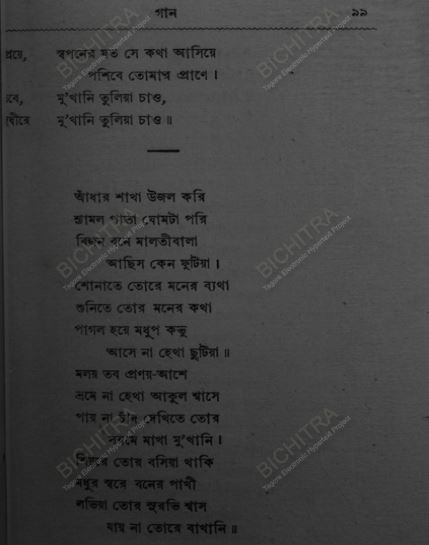 গান ৯৯
স্বপনের মত সে কথা আসিয়ে
পশিবে তোমার প্রাণে।
মু'খানি তুলিয়া চাও,
ধীরে মু'খানি তুলিয়া চাও॥
আঁধার শাখা উজল করি
শ্যামল পাতা ঘোমটা পরি
বিজন বনে মালতীবালা
আছিস কেন ফুটিয়া।
শোনাতে তোরে মনের ব্যথা
শুনিতে তোর মনের কথা
পাগল হয়ে মধুপ কভু
আসে না হেথা ছুটিয়া॥
মলয় তব প্রণয়-আশে
ভ্রমে না হেথা আকুল শ্বাসে
পায় না চাঁদ দেখিতে তোর
সরমে মাখা মু'খানি।
শিয়রে তোর বসিয়া থাকি
মধুর স্বরে বনের পাখী
লভিয়া তোর সুরভি শ্বাস
যায় না তোরে বাখানি॥
BICHITRA
Tagore Electronic Hypertext Project